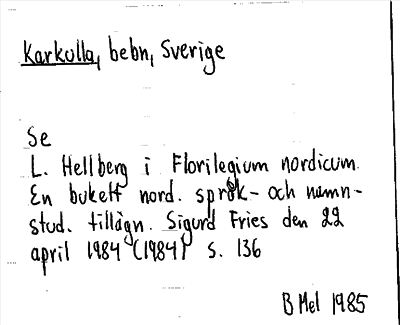 Karkulla, bebn, Sverige
Se
L. Hellberg i Florilegium nordicum.
En bukett nord. språk- och namn-
stud. tillägn. Sigurd Fries den 22
april 1984 (1984) s. 136
B Mel 1985